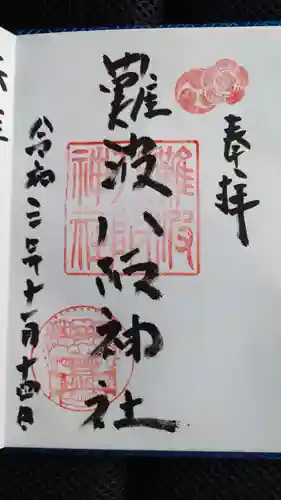 奉拝
難波八阪神社
令和三年十一月十四日
難波八阪神社